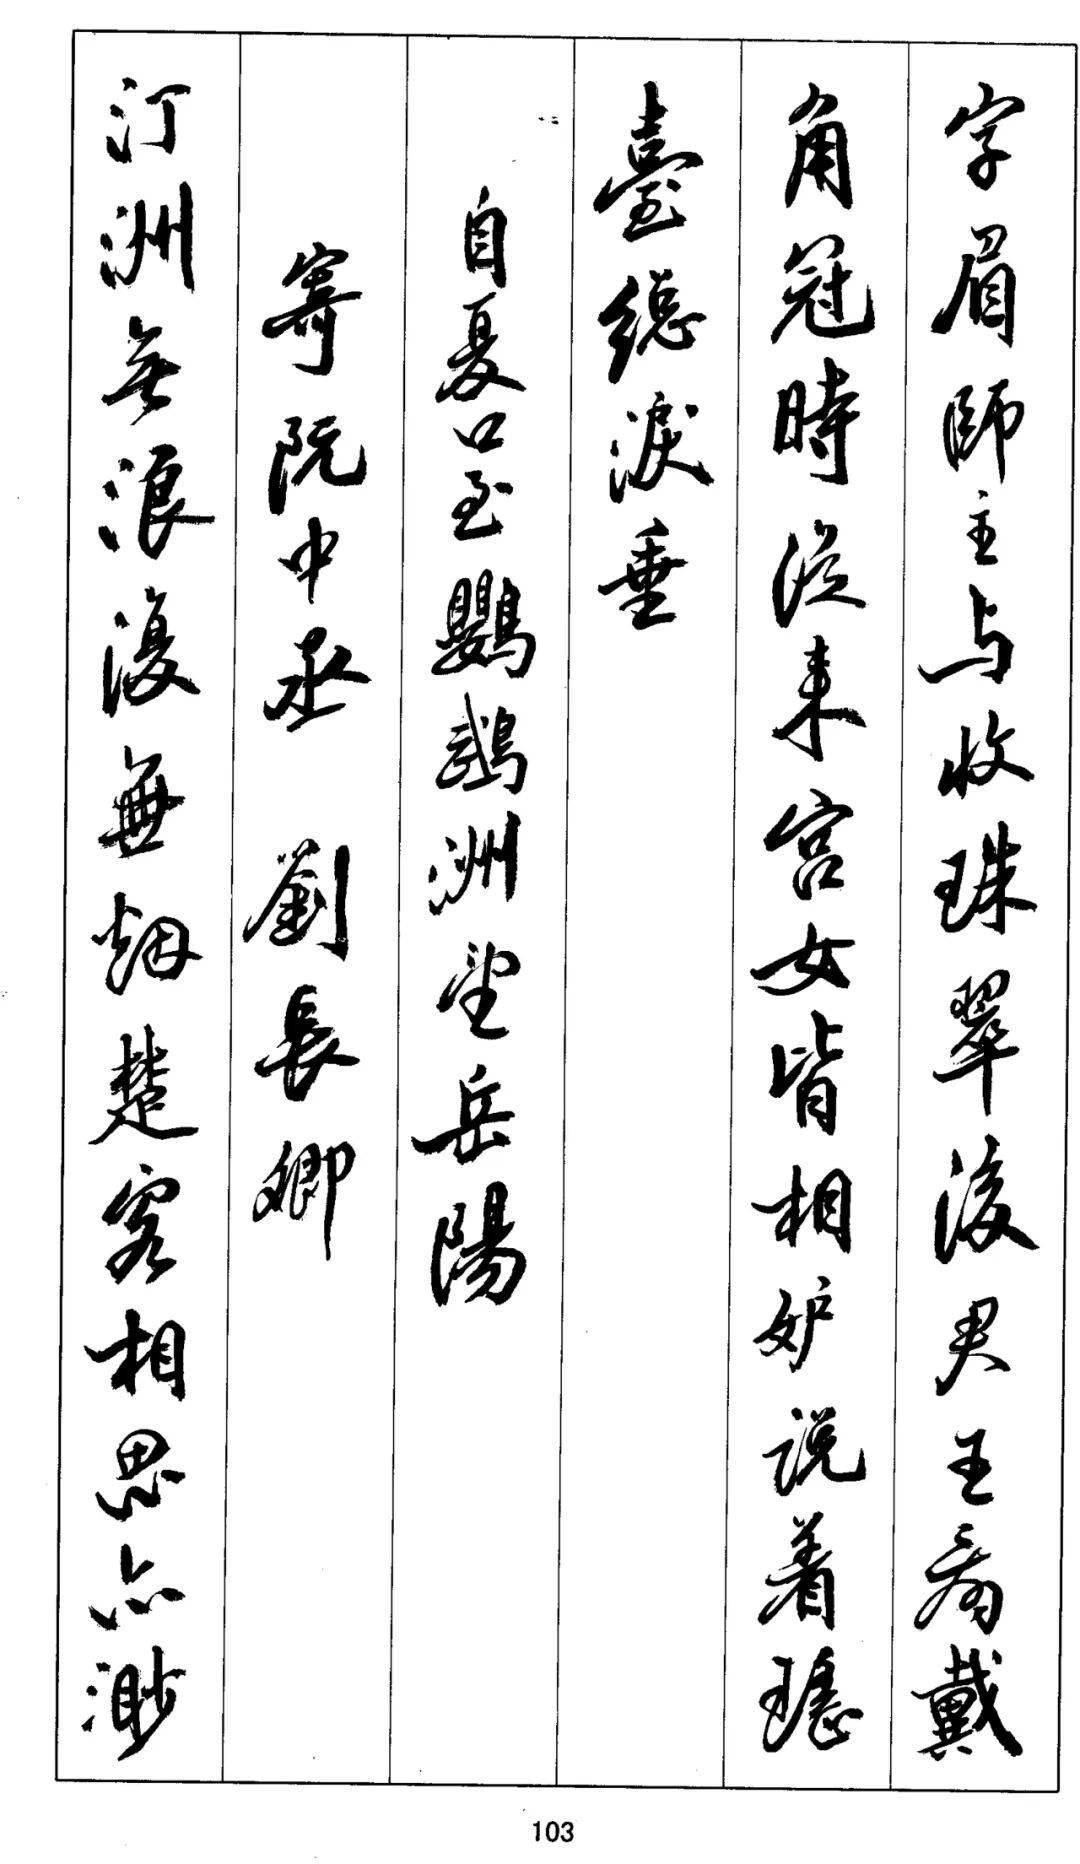 字眉師主与收珠翠後君王看戴
角冠時從来宫女皆相妒説着瑶
臺總淚垂
自夏口至鸚鵡洲望岳陽
寄阮中丞 劉長卿
汀洲無浪復無烟楚客相思亦渺
103